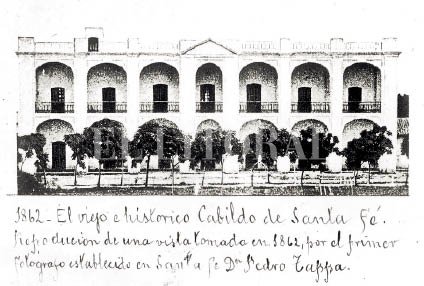 EL LITORAL
1862_ El viejo e historico Cabildo de Santa fé.
Reproducion de una vista tomada en 1862, por el primer
fotografo establecido en Santa fe Dn Pedro Tappa.